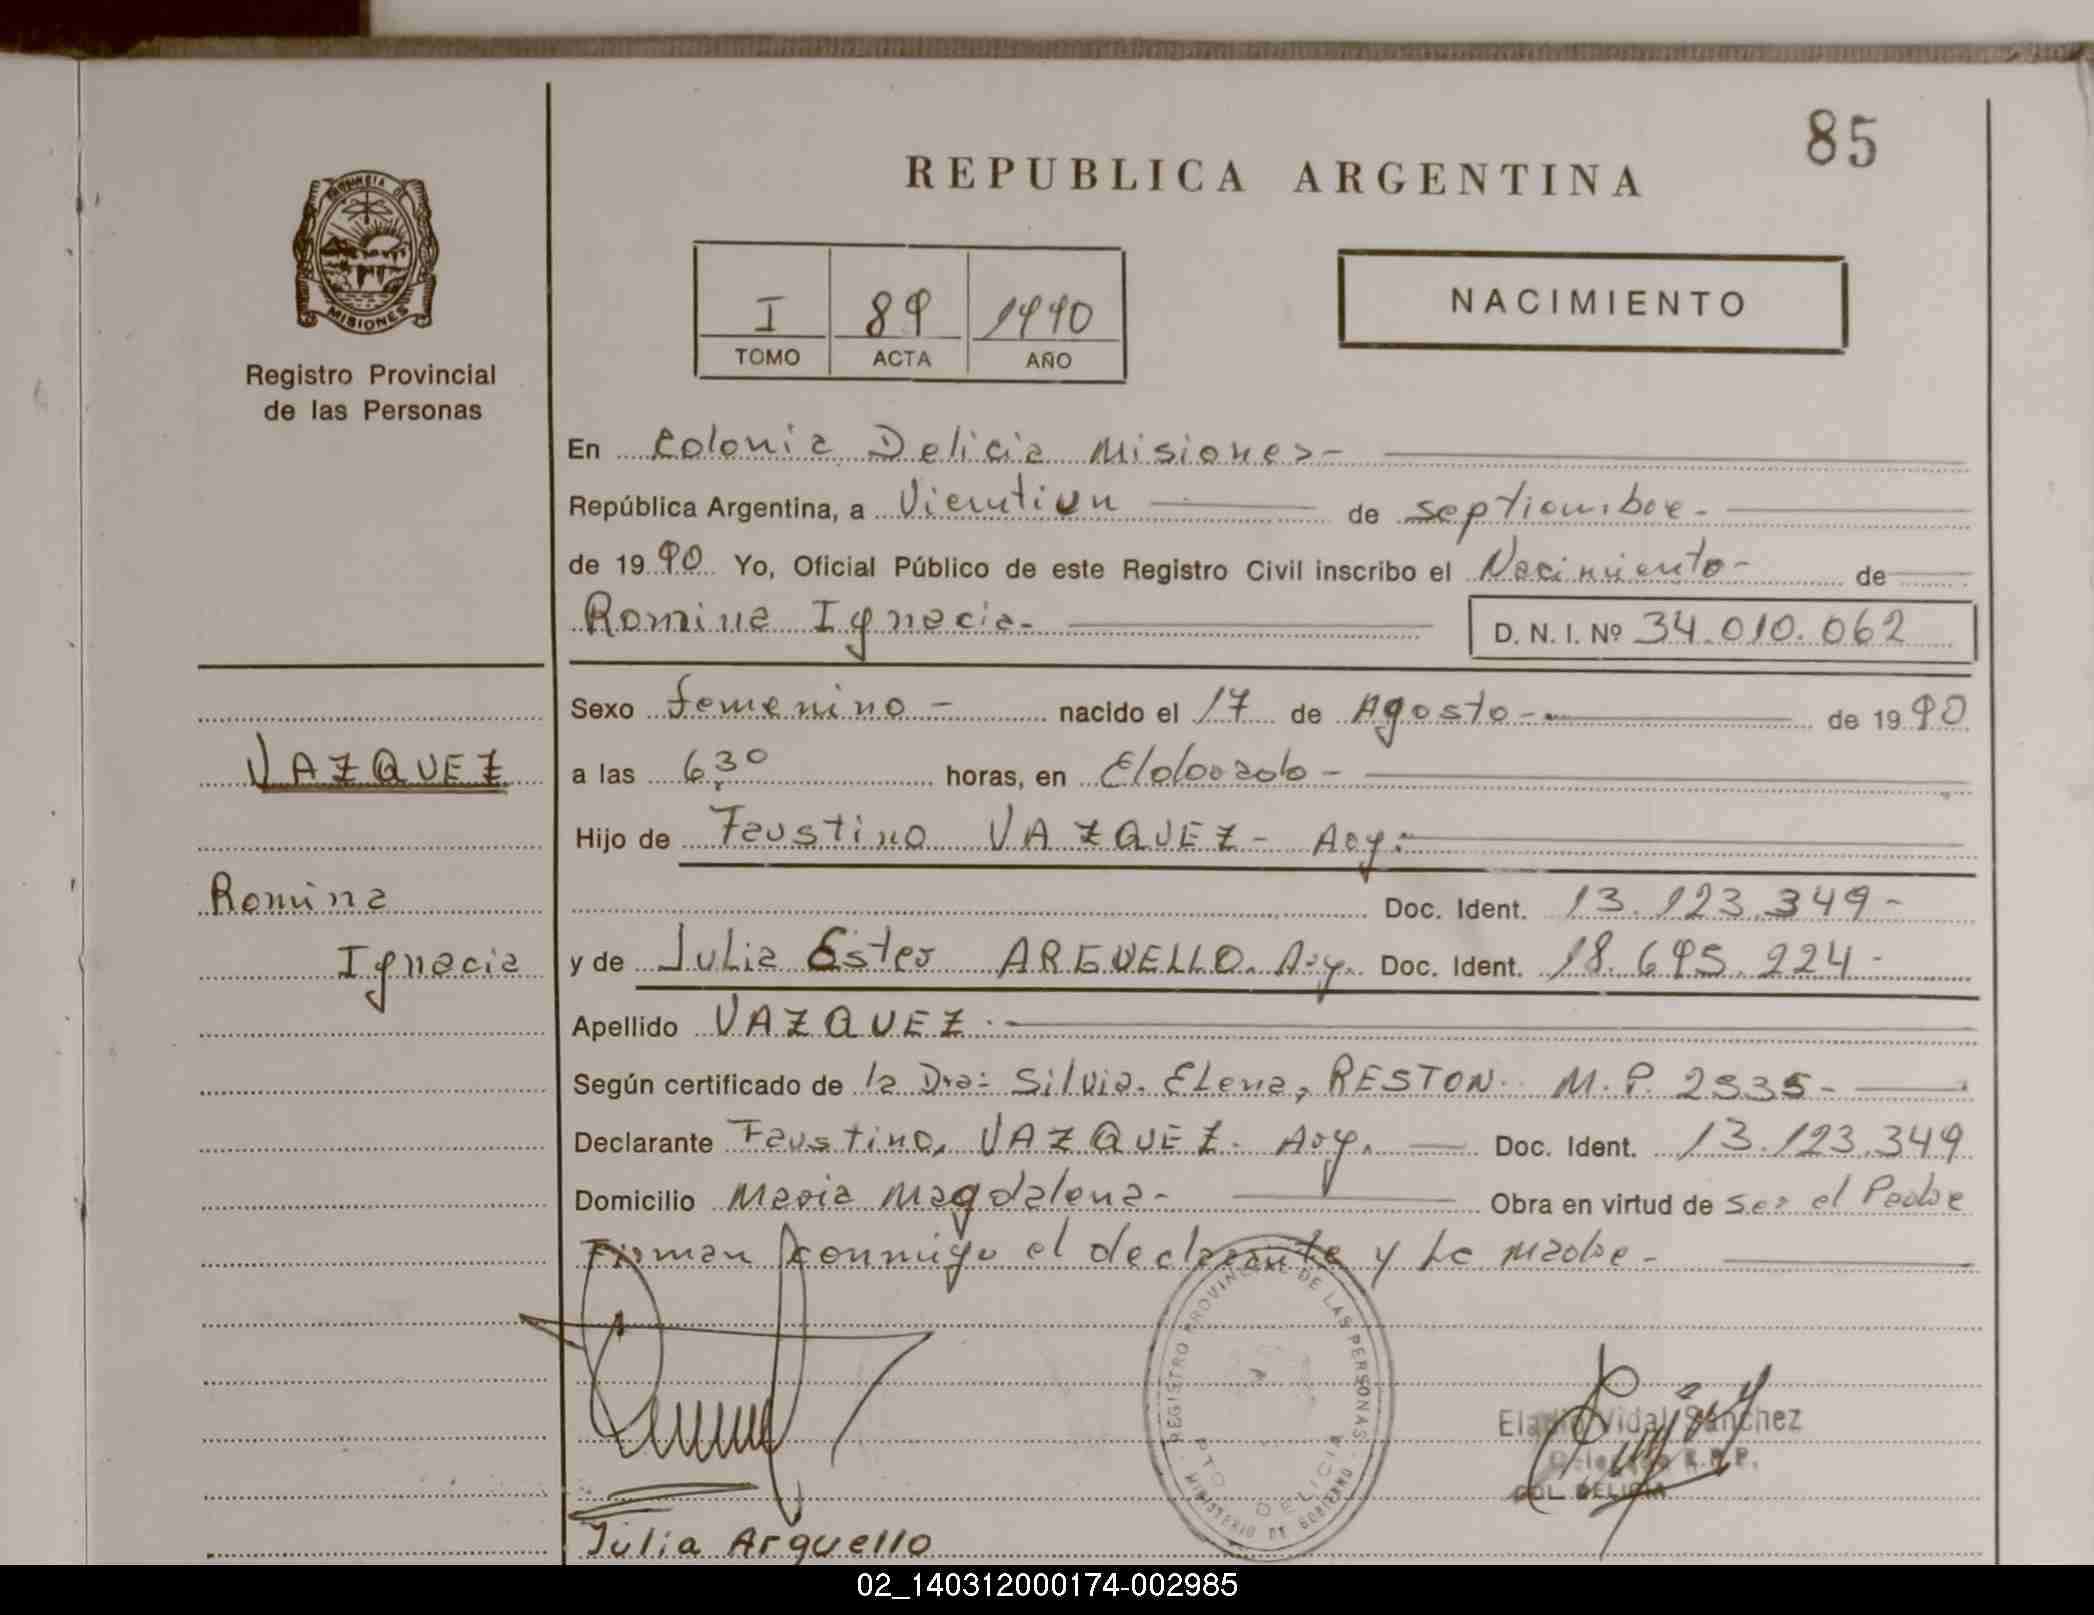 85
REPUBLICA ARGENTINA
PROVINCIA DE
MISIONES
Registro Provincial
de las Personas
I 89 1990
TOMO ACTA AÑO
NACIMIENTO
En Colonia Delicia Misiones-
República Argentina, a Vientiun de septiembre-
de 1990 Yo, Oficial Público de este Registro Civil inscribo el Nacimiento- de
Romina Ignacia- D. N. I. Nº 34.010.062
Sexo femenino - nacido el 17 de Agosto- de 1990
VAZQUEZ
a las 6,30 horas, en Eldorado-
Hijo de Faustino VAZQUEZ- Arg.
Romina
Doc. Ident. 13.123.349-
Ignacia
y de Julia Ester ARGUELLO. Arg. Doc. Ident. 18.695.224-
Apellido VAZQUEZ.
Según certificado de la Dra: Silvia. Elena, RESTON. M.P. 2535-
Declarante Faustino, VAZQUEZ. Arg. Doc. Ident. 13.123.349
Domicilio Maria Magdalena- Obra en virtud de ser el Padre
Firman conmigo el declarante y La madre-
REGISTRO PROVINCIAL DE LAS PERSONAS
PTO DELICIA
MINISTERIO DE GOBIERNO
Eladio Vidal Sanchez
COL. DELICIA
Julia Arguello
02_140312000174-002985